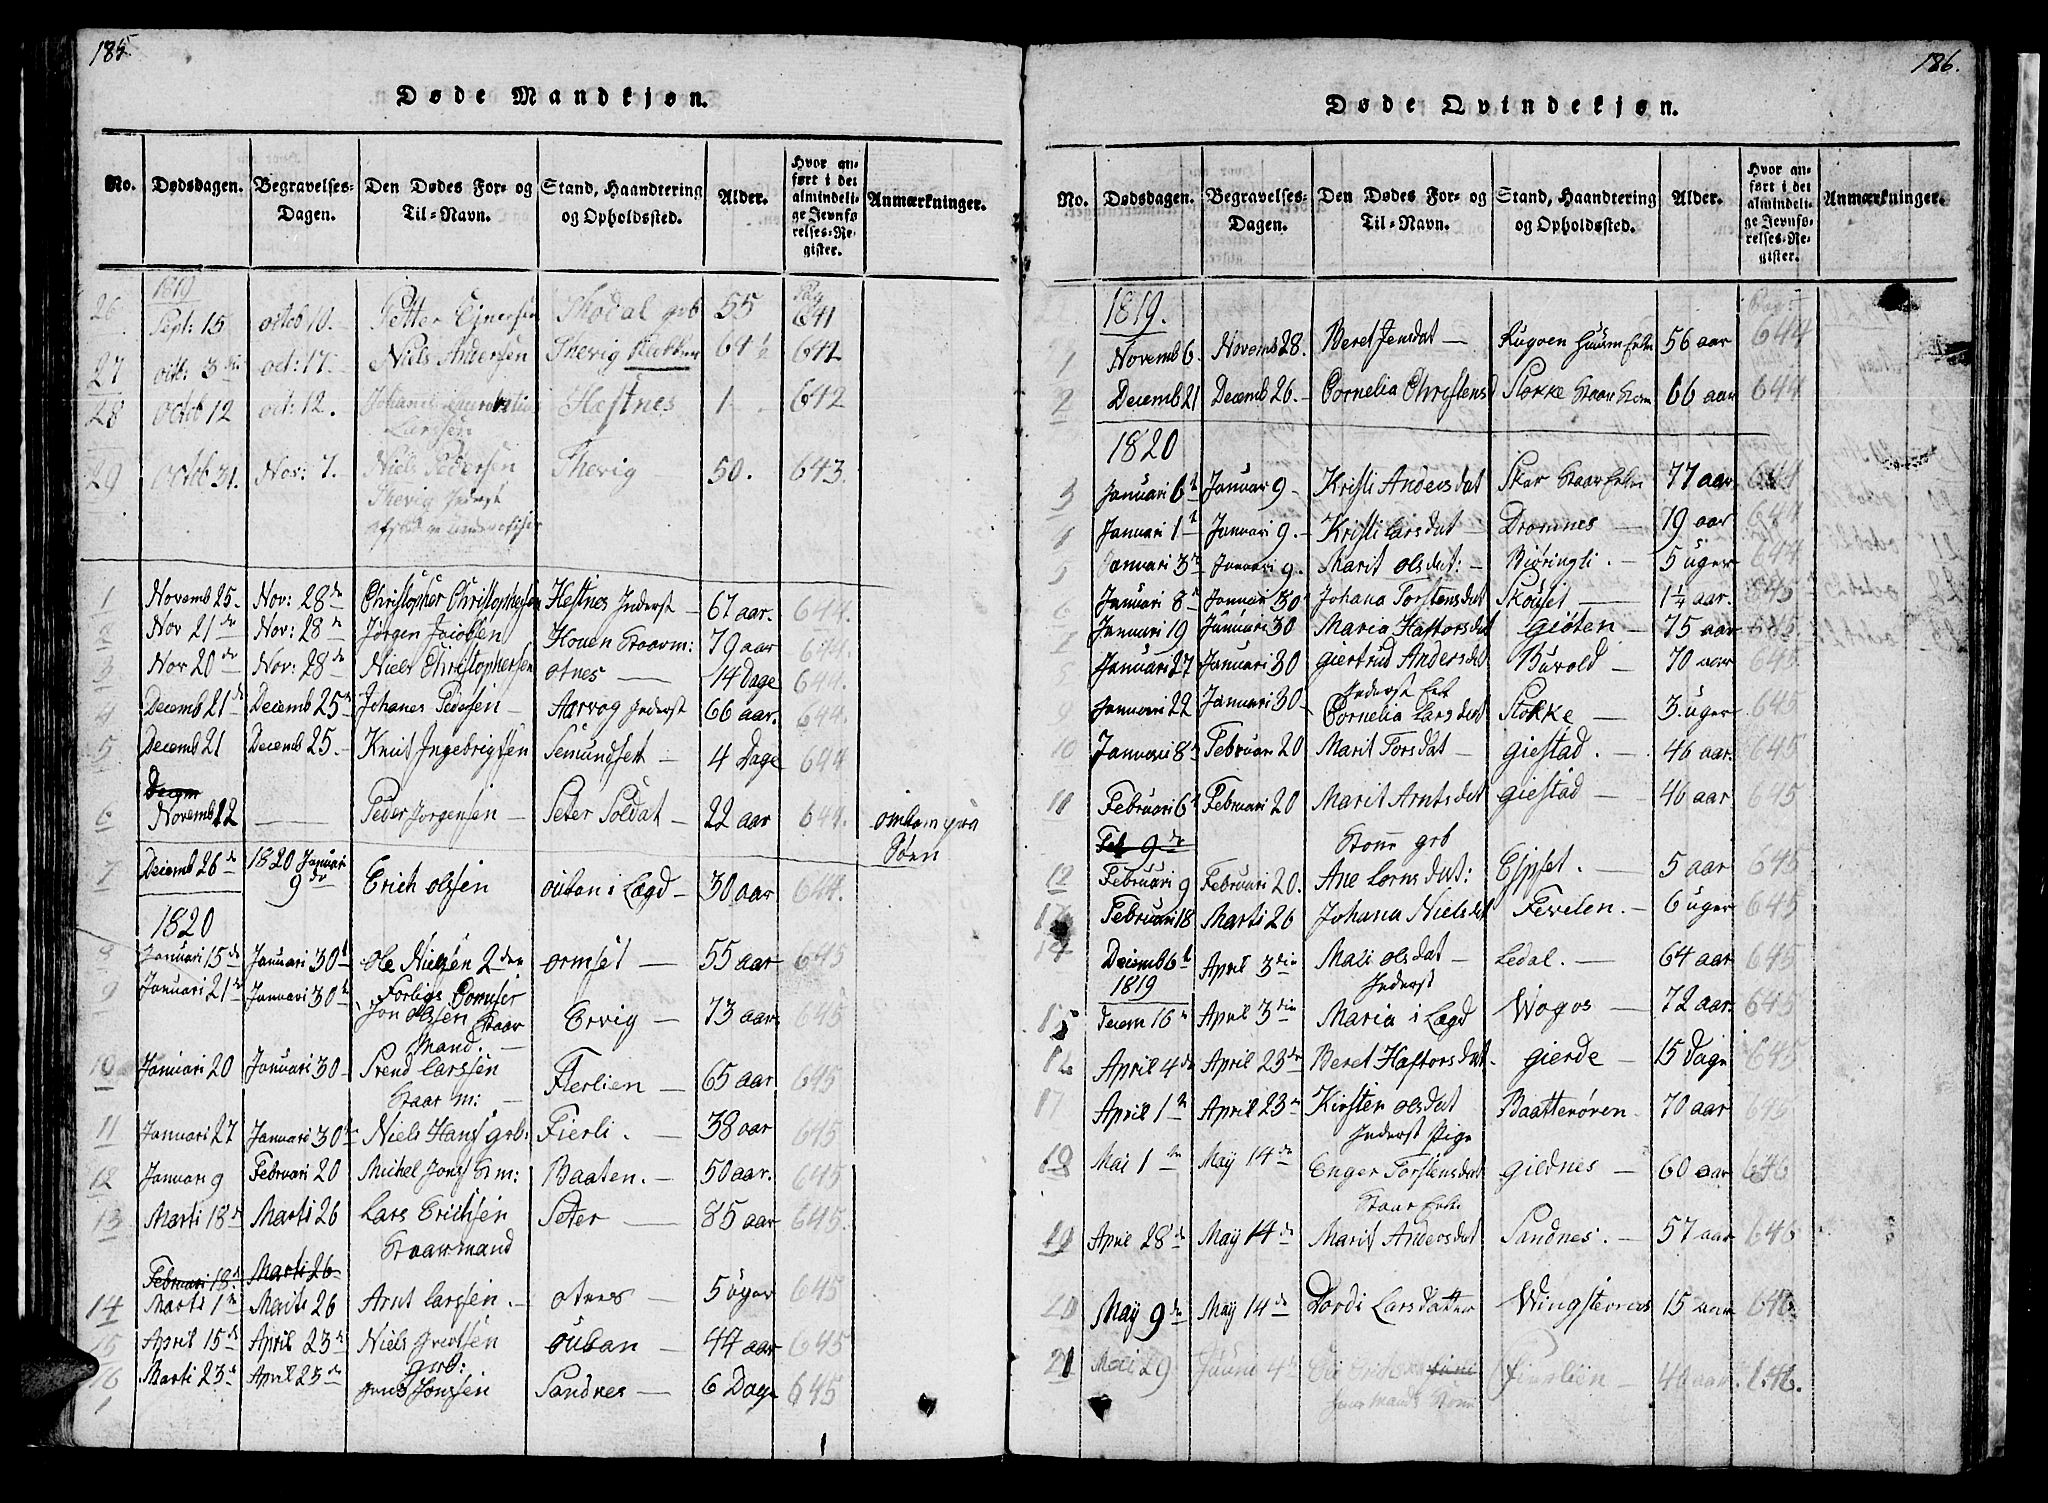 185.
Døde Mandkjøn.
No. Dødsdagen. Begravelses-Dagen. Den Dødes For- og Til-Navn. Stand, Haandtering og Opholdssted. Alder. Hvor anført i det almindelige Jevnførelses-Register. Anmærkninger.
1819 Pag
26 Sept: 15 octob 10. Petter Ejnersen Thodal grb 55 641
27 oct: 3 die oct: 17. Niels Andersen Thevig Klokker 64½ 641
28 octob 12 oct: 12. Johannes Larssen Hestnes 1 642
29 octob 31. Nov: 7. Niels Pedersen Thevig 50. 643.
Thevig Inderst
1 Novemb 25. Nov: 28 de Christopher Christophersen Hestnes Inderst 67 aar. 644.
2 Nov 21 de Nov: 28 de Jørgen Jacobsen Houen Kaarm: 79 aar 644.
3 Nov 20 de Nov: 28 de Niels Christophersen otnes 14 Dage 644.
4 Decemb 21 de Decemb 25 de Johanes Pedersen Aarvog Inderst 66 aar. 644.
5 Decemb 21 Decemb 25. Knut Ingebrigtsen Semundset 4 Dage 644
6 Novemb 12 Peder Jørgensen Seter Soldat 22 aar 644. omkom paa
Søen
7 Decemb 26 de 1820 Januari 9 de Erich olssen ouban i Lægd 30 aar 644.
1820
8 Januari 15 de Januari 30 t ole Nielsen 2 den ormset 55 aar 645
9 Januari 21 de Januari 30 t Forligs Comiser
Jon olssen Kaar Ervig 73 aar 645
Mand.
10 Januari 20 Januari 30 Svend Larssen Fierlien 65 aar 645
Kaar m:
11 Januari 27 Januari 30 t Niels Hans grb: Fierli. 38 aar 645
12 Januar 9 Februari 20 Michel Jons K m: Baaten. 50 aar. 645
13 Marti 18 d Marti 26 Lars Erichsen Seter 85 aar 645.
Kaarmand
Februari 18. Marti 26
14 Marti 1 Marti 26 Arnt Larssen. otnes 5 uger 645
15 April 15 de April 23 de Niels Ivertsen ouban 44 aar 645
grb:
16 Marti 23 d April 23 de Jens Jonssen Sandnes 6 Dage 645
186.
Døde Qvindekjøn.
No. Dødsdagen. Begravelses-Dagen. Den Dødes For- og Til-Navn. Stand, Haandtering og Opholdssted. Alder. Hvor anført i det almindelige Jevnførelses-Register. Anmærkninger.
1819. Pag:
1 Novemb 6. Novemb 28. Beret Jensdat Rugven 56 aar 644
2 Decemb 21 Decemb 26. Cornelia Christensd Stokke Kaar Kone 66 aar 644
1820
3 Januari 6 t Januar 9 Kristi Andersdat Skar Kaar Enke 77 aar 644
Januari 1 t Januari 9. Kristi Larsdat Dromnes 19 aar 644
5 Januari 3 Januari 9. Marit olsdat: Biøringli. 5 uger 644
6 Januari 8 Januari 30 Johana Torstensdat Skouset 1¼ aar. 645
7 Januari 19 Januari 30 Maria Haftorsdat Giøten 75 aar 645.
Januari 27 Januari 30 Giertrud Andersdat Buvold 70 aar 645
Inderst Enk
9 Januari 22 Januari 30 Cornelia Larsdat Stokke 3 uger 645
10 Januari 8 Februari 20 Marit Torsdat giestad. 46 aar. 645
11 Februari 6 t Februari 20 Marit Arntsdat giestad 46 aar 645
Feb 9 de Kone grb
12 Februari 9 Februari 20. Ane Lornsdat: Espset. 5 aar 645
13 Februari 18 Marti 26 Johana Nielsdat Fevelen. 6 uger 645
14 Decemb 6 t April 3 die Mali olsdat Ledal. 64 aar 645
1819 Inderst
15 Decem 16 April 3 die Maria i Lægd Wogos 72 aar. 645
16 April 4 de April 23 de Beret Haftorsdat. gierde 15 Dage 645.
17 April 1 April 23 Kirsten olsdat Baatterøren. 70 aar 645
Inderst Pige
18 Mai 1 May 14 de Enger Torstensdat gildnes 60 aar 646
Kaar Enke
19 April 28 de May 14 de Marit Andersdat Sandnes. 57 aar 646
20 May 9 de May 14 de Dordi Larsdatter Wingsternes 15 aar 646.
21 Mai 29 Juuni 4 Fierlien 40 aar. 646.